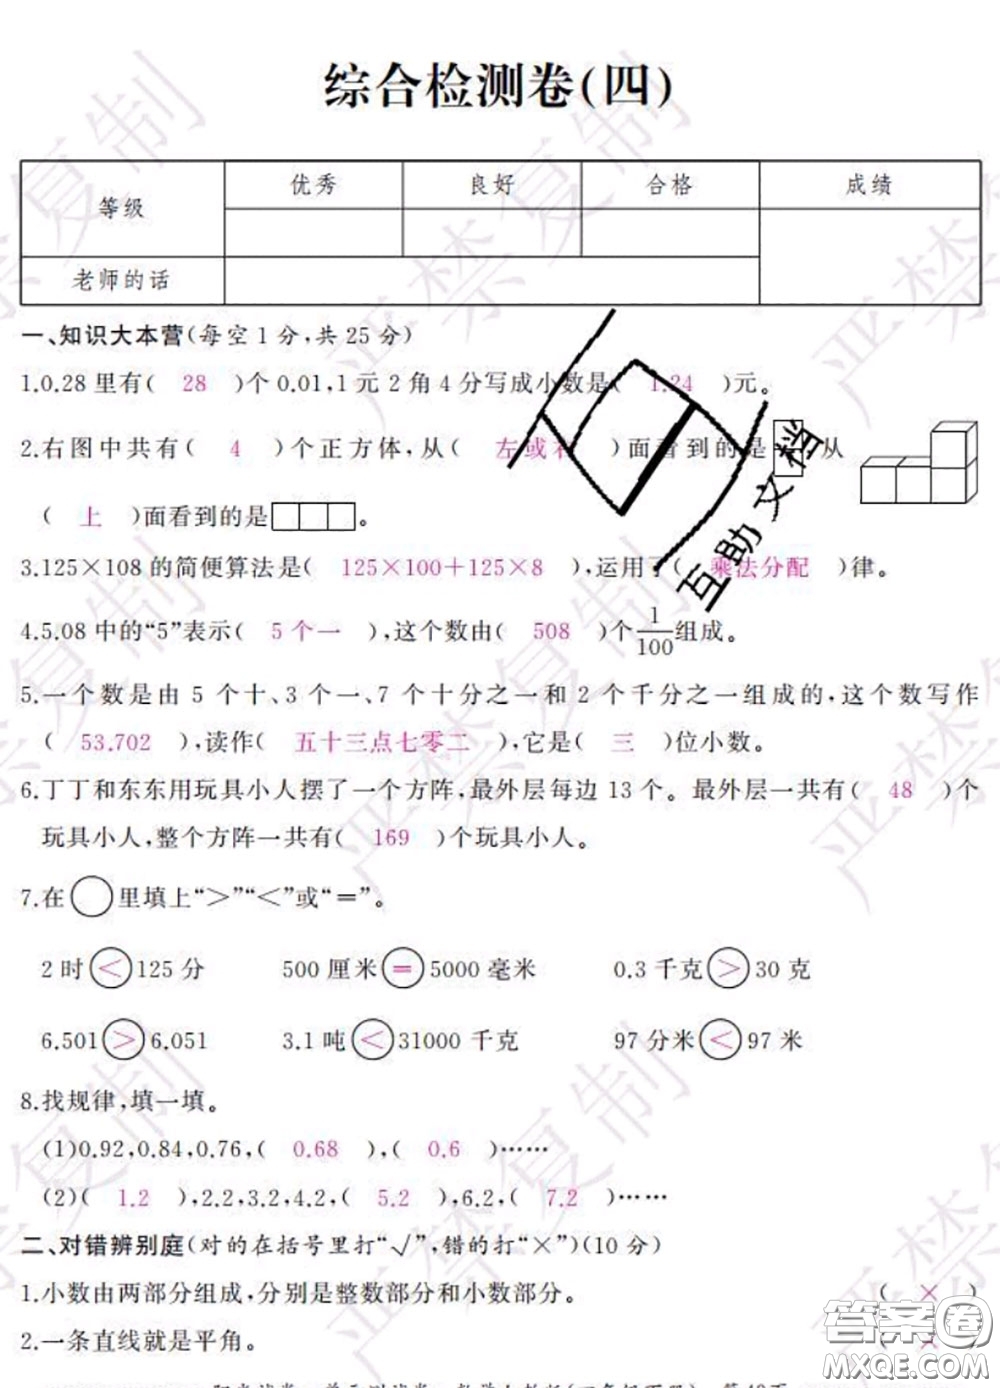 综合检测卷(四)
等级 优秀 良好 合格 成绩
老师的话
一、知识大本营(每空1分,共25分)
1.0.28里有( 28 )个0.01,1元2角4分写成小数是( 1.24 )元。
2.右图中共有( 4 )个正方体,从( 左或右 )面看到的是 从
( 上 )面看到的是 。
3.125×108的简便算法是( 125×100+125×8 ),运用了( 乘法分配 )律。
4.5.08中的“5”表示( 5个一 ),这个数由( 508 )个1/100组成。
5.一个数是由5个十、3个一、7个十分之一和2个千分之一组成的,这个数写作
( 53.702 ),读作( 五十三点七零二 ),它是( 三 )位小数。
6.丁丁和东东用玩具小人摆了一个方阵,最外层每边13个。最外层一共有( 48 )个
玩具小人,整个方阵一共有( 169 )个玩具小人。
7.在○里填上“>”“<”或“=”。
2时<125分 500厘米=5000毫米 0.3千克>30克
6.501>6.051 3.1吨<31000千克 97分米<97米
8.找规律,填一填。
(1)0.92,0.84,0.76,( 0.68 ),( 0.6 )……
(2)( 1.2 ),2.2,3.2,4.2,( 5.2 ),6.2,( 7.2 )……
二、对错辨别庭(对的在括号里打“√”,错的打“×”)(10分)
1.小数由两部分组成,分别是整数部分和小数部分。 ( × )
2.一条直线就是平角。 ( × )
互助文档
严禁复制
答案圈
MXQE.COM